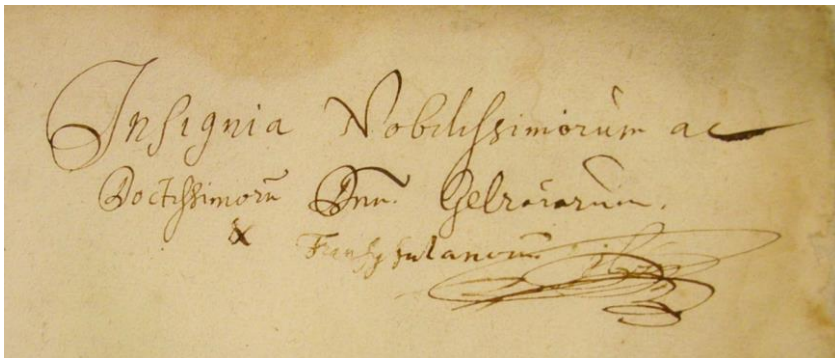 Insignia Nobilissimorum ac
Doctissimorū Dnn. Gelrorarum.
& Transysulanorum